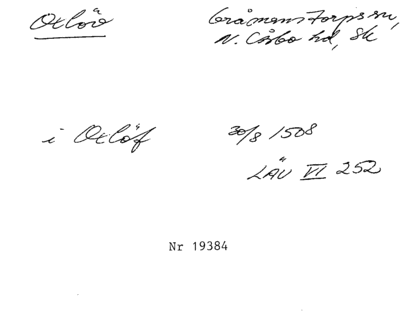 Otlöv Gråmanstorps sn,
N. Åsbo hd, Sk
i Otlöf 30/8 1508
LÄU VI 252
Nr 19384